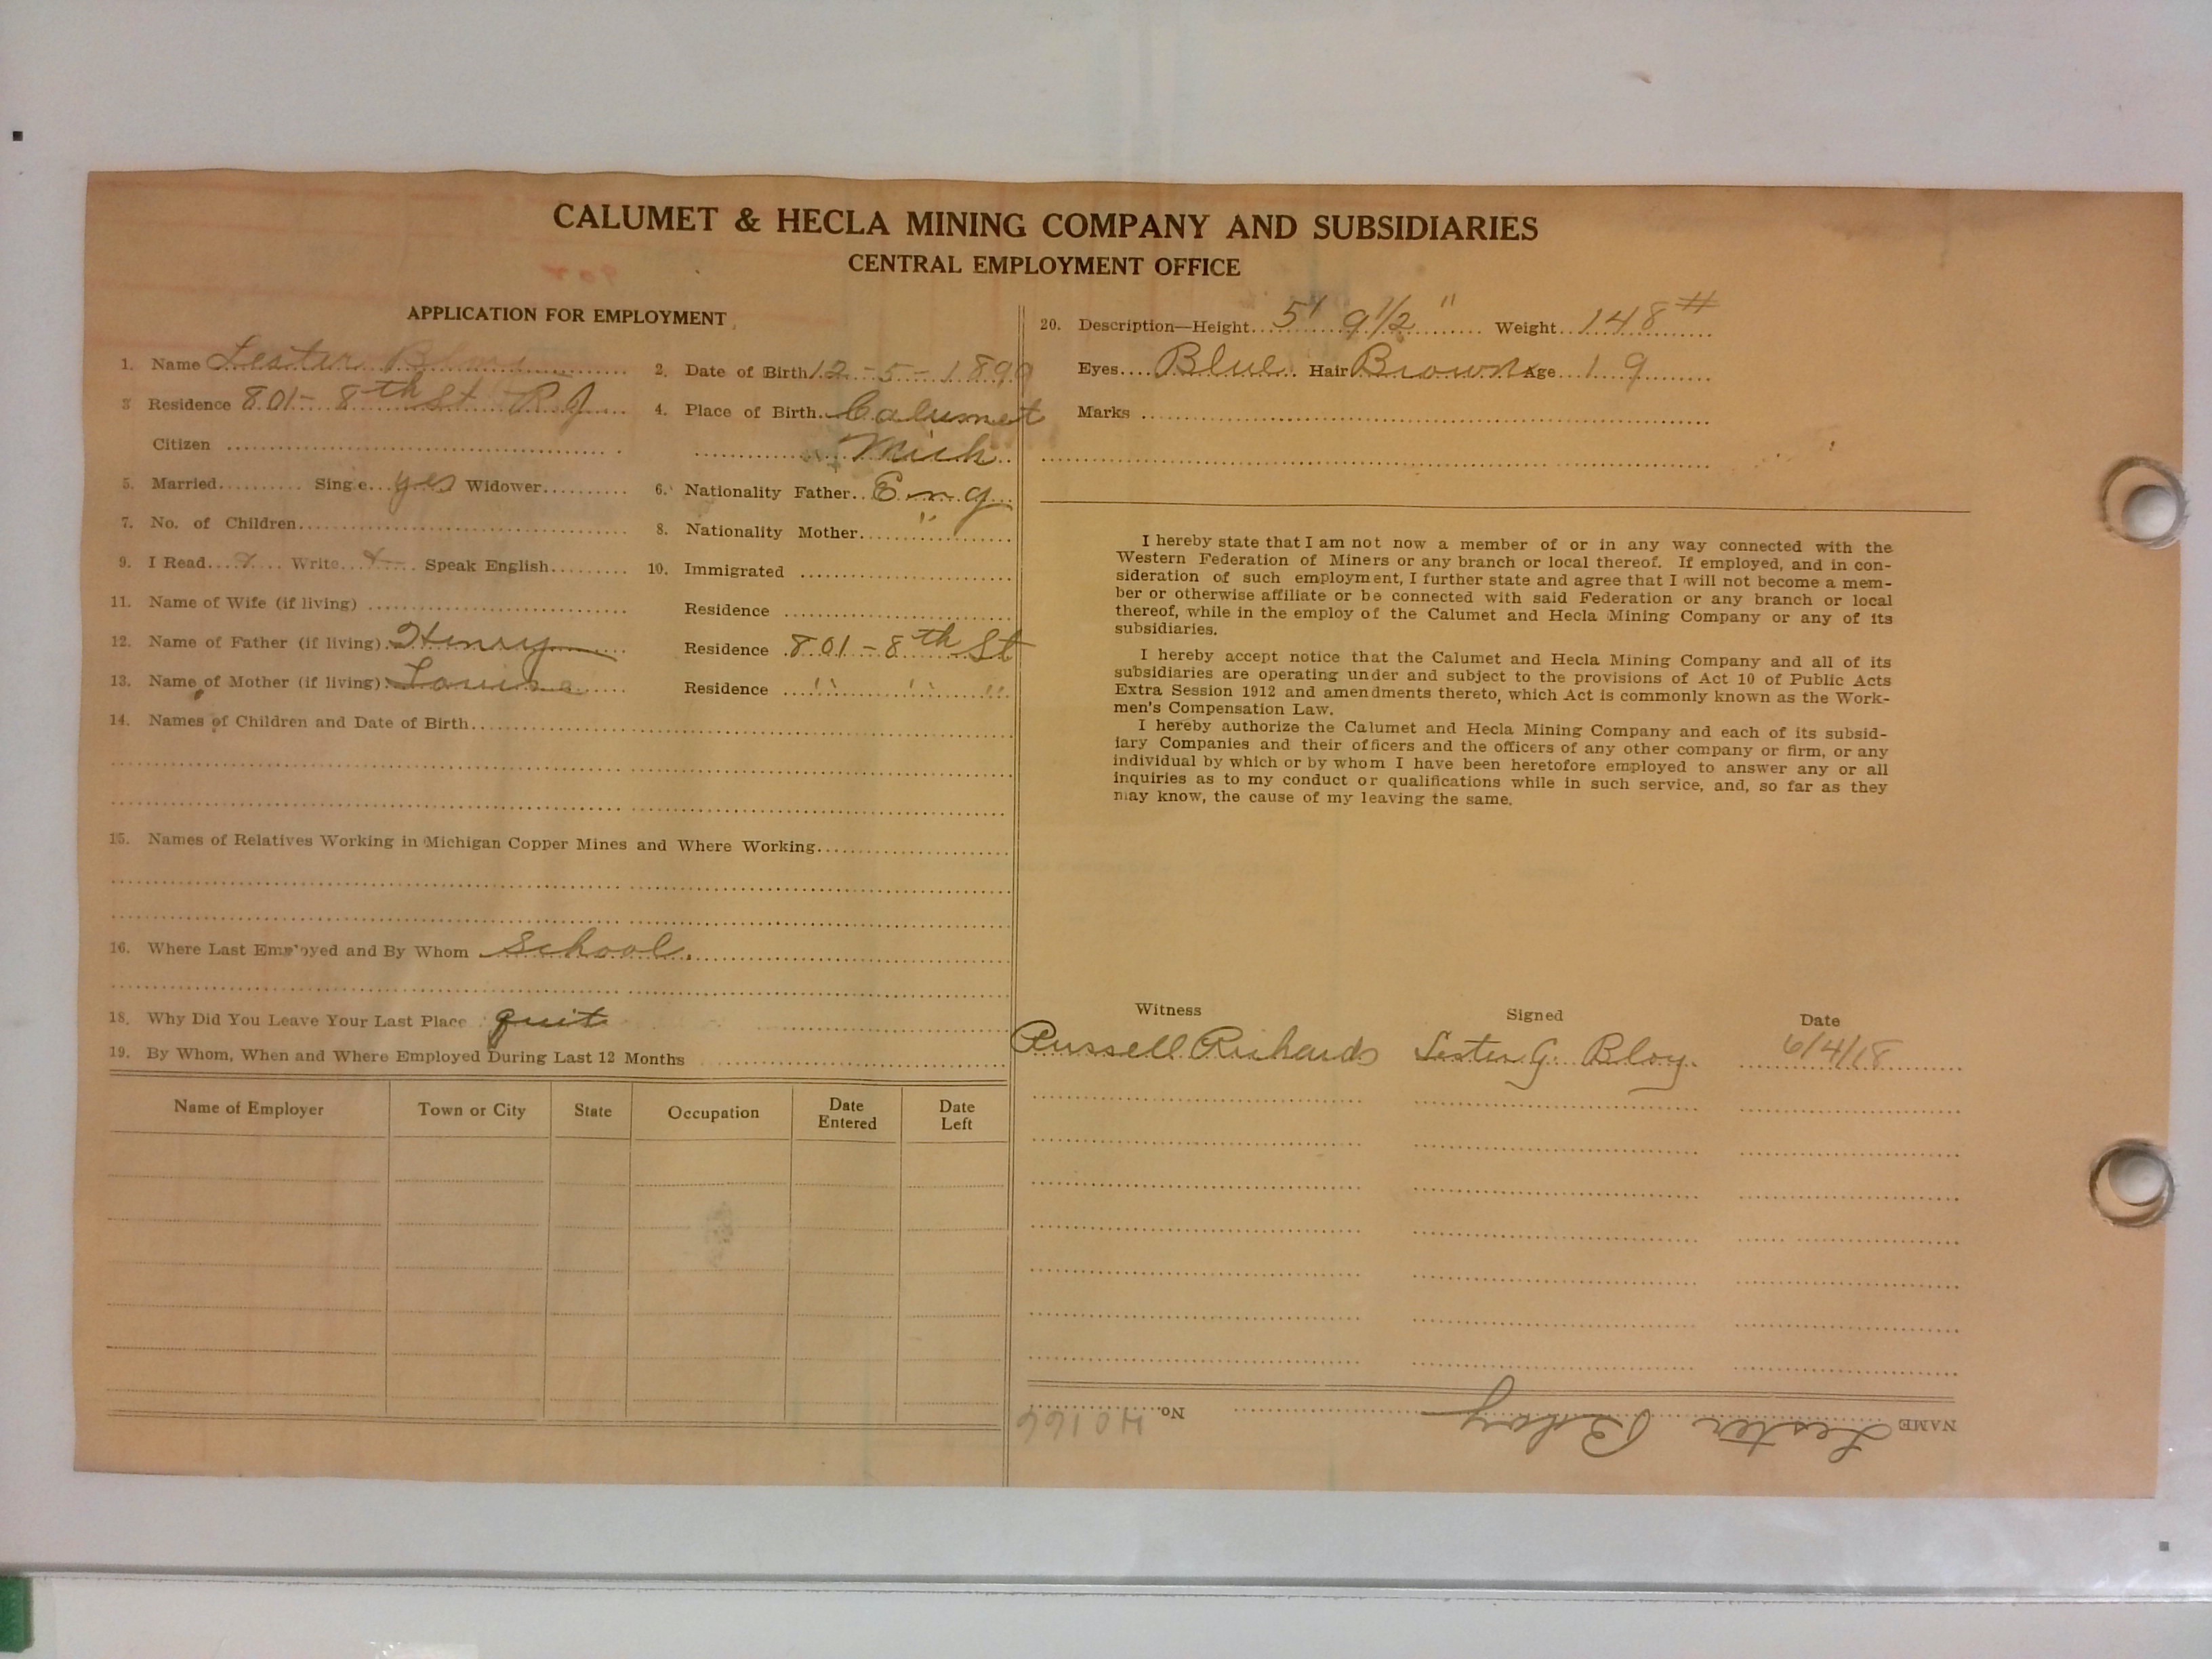 CALUMET & HECLA MINING COMPANY AND SUBSIDIARIES
CENTRAL EMPLOYMENT OFFICE
APPLICATION FOR EMPLOYMENT
1. Name Lester 2. Date of Birth 12-5-1899
3 Residence 801- 8th St 4. Place of Birth Calumet
Citizen Mich
5. Married Sing e yes Widower 6. Nationality Father Eng
7. No. of Children 8. Nationality Mother "
9. I Read Write Speak English 10. Immigrated
11. Name of Wife (if living) Residence
12. Name of Father (if living) Henry Residence 801-8th St
13. Name of Mother (if living) Louisa Residence " " "
14. Names of Children and Date of Birth
15. Names of Relatives Working in Michigan Copper Mines and Where Working
16. Where Last Employed and By Whom School.
18. Why Did You Leave Your Last Place quit
19. By Whom, When and Where Employed During Last 12 Months
Name of Employer Town or City State Occupation Date Entered Date Left
20. Description—Height 5' 9 1/2" Weight 148#
Eyes Blue Hair Brown Age 19
Marks
I hereby state that I am not now a member of or in any way connected with the
Western Federation of Miners or any branch or local thereof. If employed, and in con-
sideration of such employment, I further state and agree that I will not become a mem-
ber or otherwise affiliate or be connected with said Federation or any branch or local
thereof, while in the employ of the Calumet and Hecla Mining Company or any of its
subsidiaries.
I hereby accept notice that the Calumet and Hecla Mining Company and all of its
subsidiaries are operating under and subject to the provisions of Act 10 of Public Acts
Extra Session 1912 and amendments thereto, which Act is commonly known as the Work-
men's Compensation Law.
I hereby authorize the Calumet and Hecla Mining Company and each of its subsid-
iary Companies and their officers and the officers of any other company or firm, or any
individual by which or by whom I have been heretofore employed to answer any or all
inquiries as to my conduct or qualifications while in such service, and, so far as they
may know, the cause of my leaving the same.
Witness Signed Date
Russell Richards Lester G. Bloy. 6/4/18
NAME Lester Bloy No.